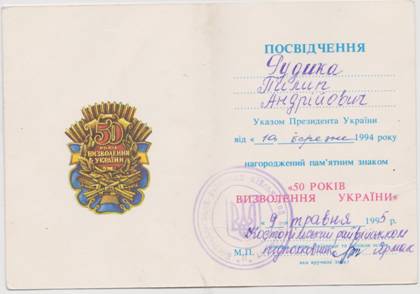 50
РОКІВ
ВИЗВОЛЕННЯ
УКРАЇНИ
ПОСВІДЧЕННЯ
Чудика
Пилип
Андрійович
Указом Президента України
від « 10 » березня 1994 року
нагороджений пам'ятним знаком
«50 РОКІВ
ВИЗВОЛЕННЯ УКРАЇНИ»
« 9 » травня 1995 р.
Костопільський райвійськком
підполковник Ярмак
М.П.